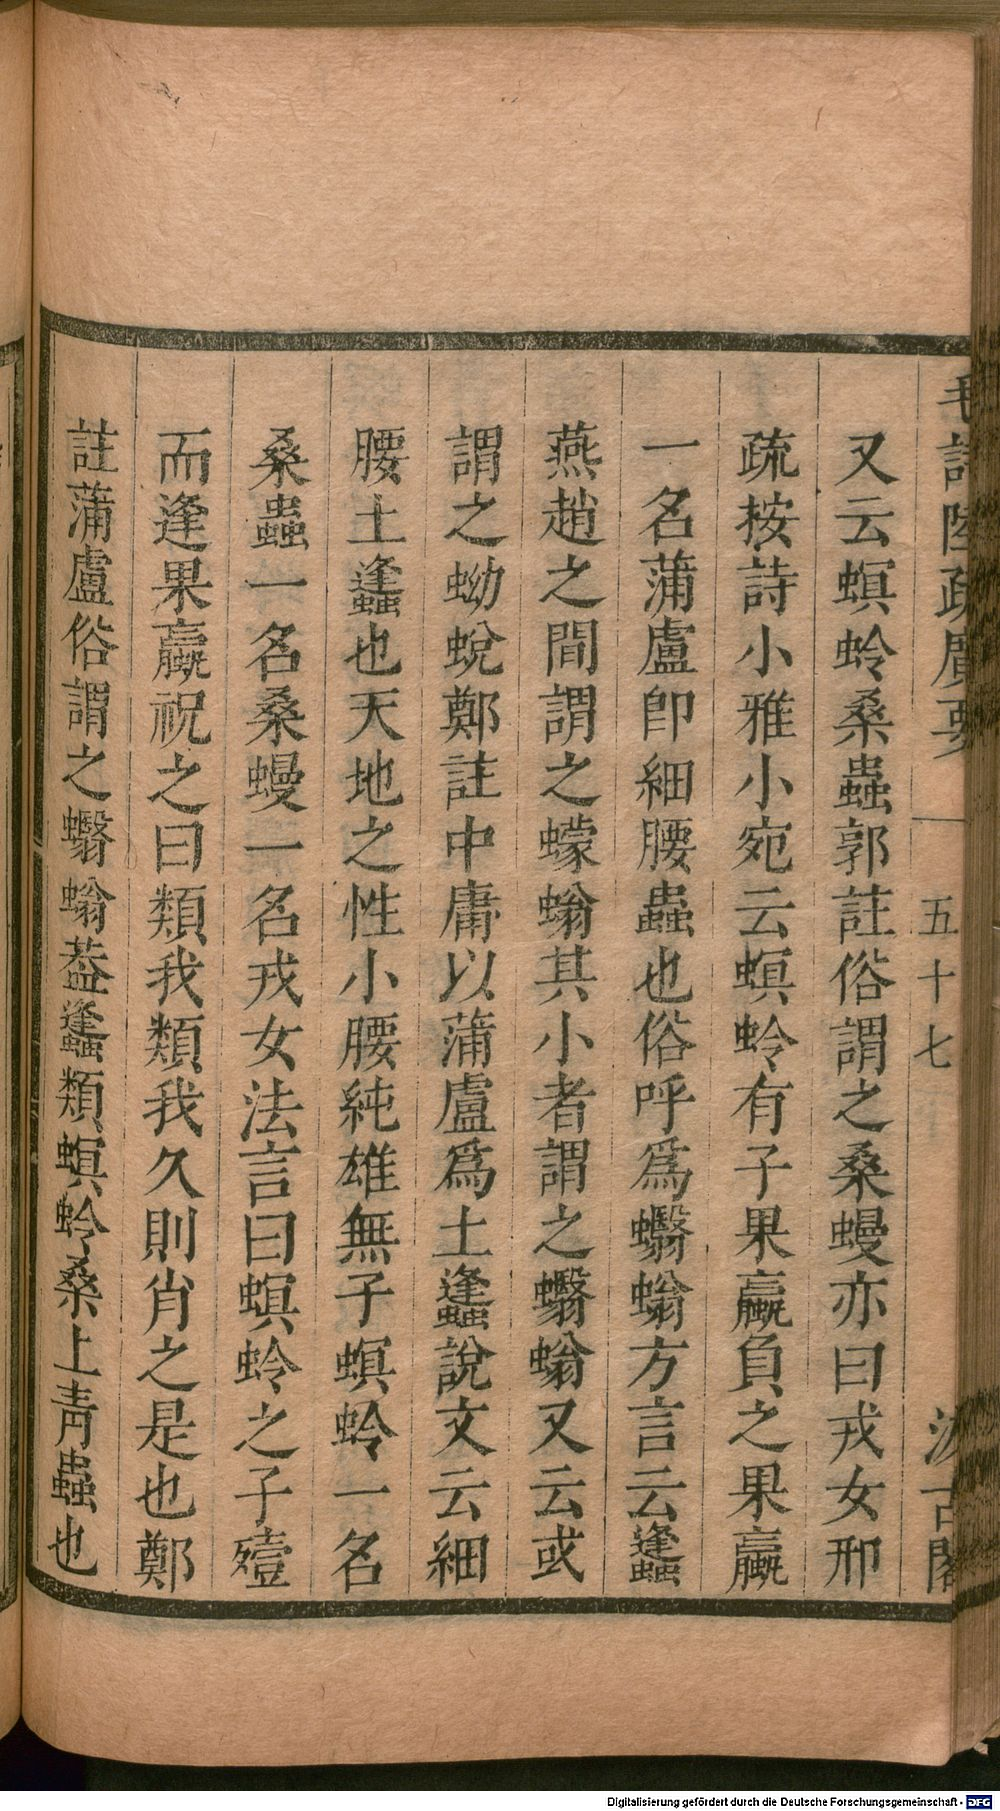 毛詩陸疏廣要 五十七 汲古閣
又云螟蛉桑蟲郭註俗謂之桑蟃亦曰戎女邢
疏按詩小雅小宛云螟蛉有子果蠃負之果蠃
一名蒲盧卽細腰蟲也俗呼爲蠮螉方言云蠭
燕趙之間謂之蠓螉其小者謂之蠮螉又云或
謂之蚴蛻鄭註中庸以蒲盧爲土蠭說文云細
腰土蠭也天地之性小腰純雄無子螟蛉一名
桑蟲一名桑蟃一名戎女法言曰螟蛉之子殪
而逢果蠃祝之曰類我類我久則肖之是也鄭
註蒲盧俗謂之蠮螉葢蠭類螟蛉桑上靑蟲也
Digitalisierung gefördert durch die Deutsche Forschungsgemeinschaft - DFG